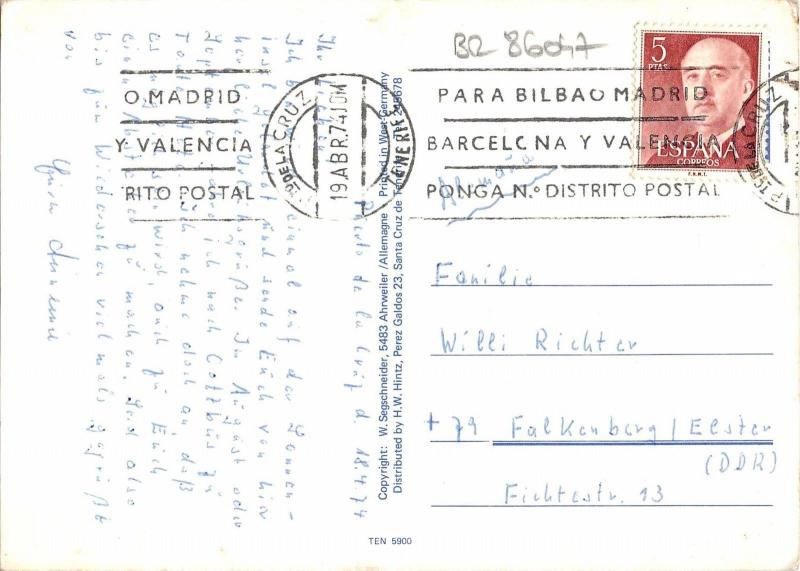 BR 86047
5
PTAS
ESPAÑA
CORREOS
F.N.M.T.
PTO DE LA CRUZ
19 ABR. 74 10M
TENERIFE
O, MADRID
Y VALENCIA
RITO POSTAL
PARA BILBAO MADRID
BARCELONA Y VALENCIA
PONGA N.º DISTRITO POSTAL
PTO DE LA CRUZ
Alemaña
Puerto de la Cruz d. 18.4.74
Ihr
Ich bin einmal auf der Sonnen-
insel und sende Euch von hier
herzliche Urlaubsgrüße. Im August oder
Sept. ich nach Cottbus zu
ich nehme doch an, daß
es wird, auch zu Euch
einen zu machen. Seid also
bis zum Wiedersehen vielmals gegrüßt
von
Eurer Annemie
Copyright: W. Segschneider, 5483 Ahrweiler/Allemagne Printed in West-Germany
Distributed by H.W. Hintz, Perez Galdos 23, Santa Cruz de Ten 245678
Familie
Willi Richter
+ 79 Falkenberg/Elster
(DDR)
Fichtestr. 13
TEN 5900